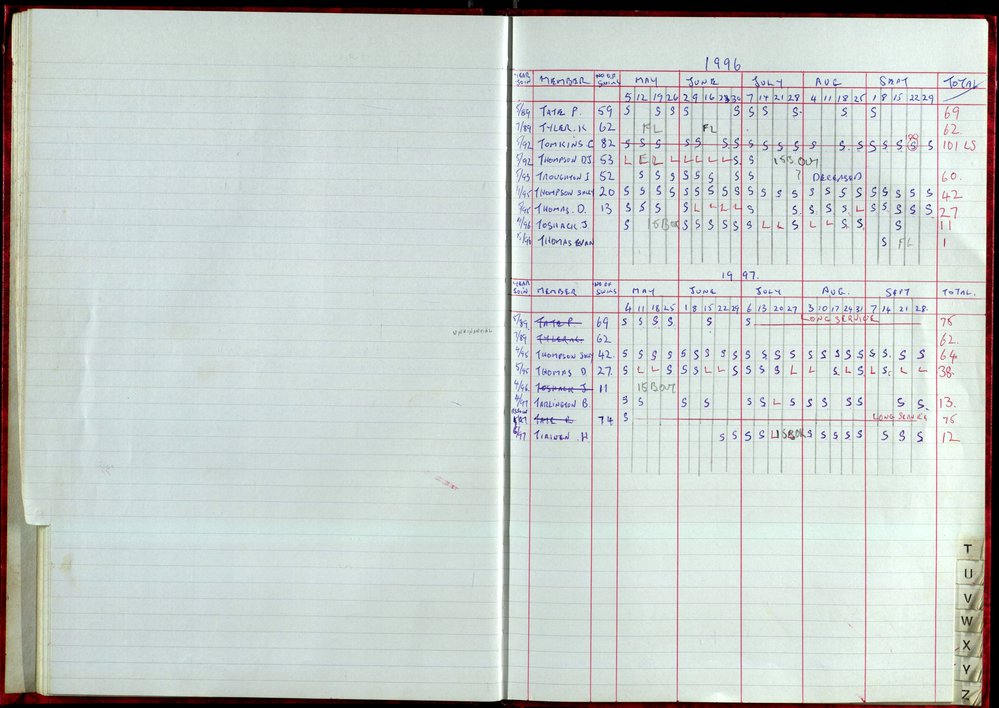 1996
YEAR JOIN MEMBER NO OF SWIMS MAY JUNE JULY AUG SEPT TOTAL
5 12 19 26 2 9 16 23 30 7 14 21 28 4 11 18 25 1 8 15 22 29
5/89 TATE P. 59 S S S S S S S S S S 69
7/89 TYLER. K 62 FL FL 62
5/92 TOMKINS. C 82 S S S S S S S S S S S S S S S S S S S 101 LS
5/92 THOMPSON DJ 53 L EL L L L L L S S 15 B OUT
5/93 TROUGHTON I 52 S S S S S S S S ? DECEASED 60.
THOMPSON 20 S S S S S S S S S S S S S S S S S S S S S S 42
THOMAS. D. 13 S S S S L L L L S S S S S L S S S S 27
4/96 TOSHACK J S 15 BOR S S S S S S L L S L L S S S 11
THOMAS EVAN S FL 1
1997.
YEAR JOIN MEMBER NO OF SWIMS MAY JUNE JULY AUG. SEPT TOTAL.
4 11 18 25 1 8 15 22 29 6 13 20 27 3 10 17 24 31 7 14 21 28
5/89. TATE P. 69 S S S S S S LONG SERVICE 75
UNFINANCIAL 7/89 TYLER K. 62 62.
THOMPSON 42. S S S S S S S S S S S S S S S S S S S S S S 64
THOMAS D 27. S L L S S L L S S S S L L S L S L S. L L 38.
4/96. TOSHACK J 11 15 B OUT
4/97 TARLINGTON B. S S S S S S L S S S S S S S 13.
TATE P. 74 S LONG SERVICE 75
6/97 S S S S 15 BOR S S S S S S S 12
T
U
V
W
X
Y
Z